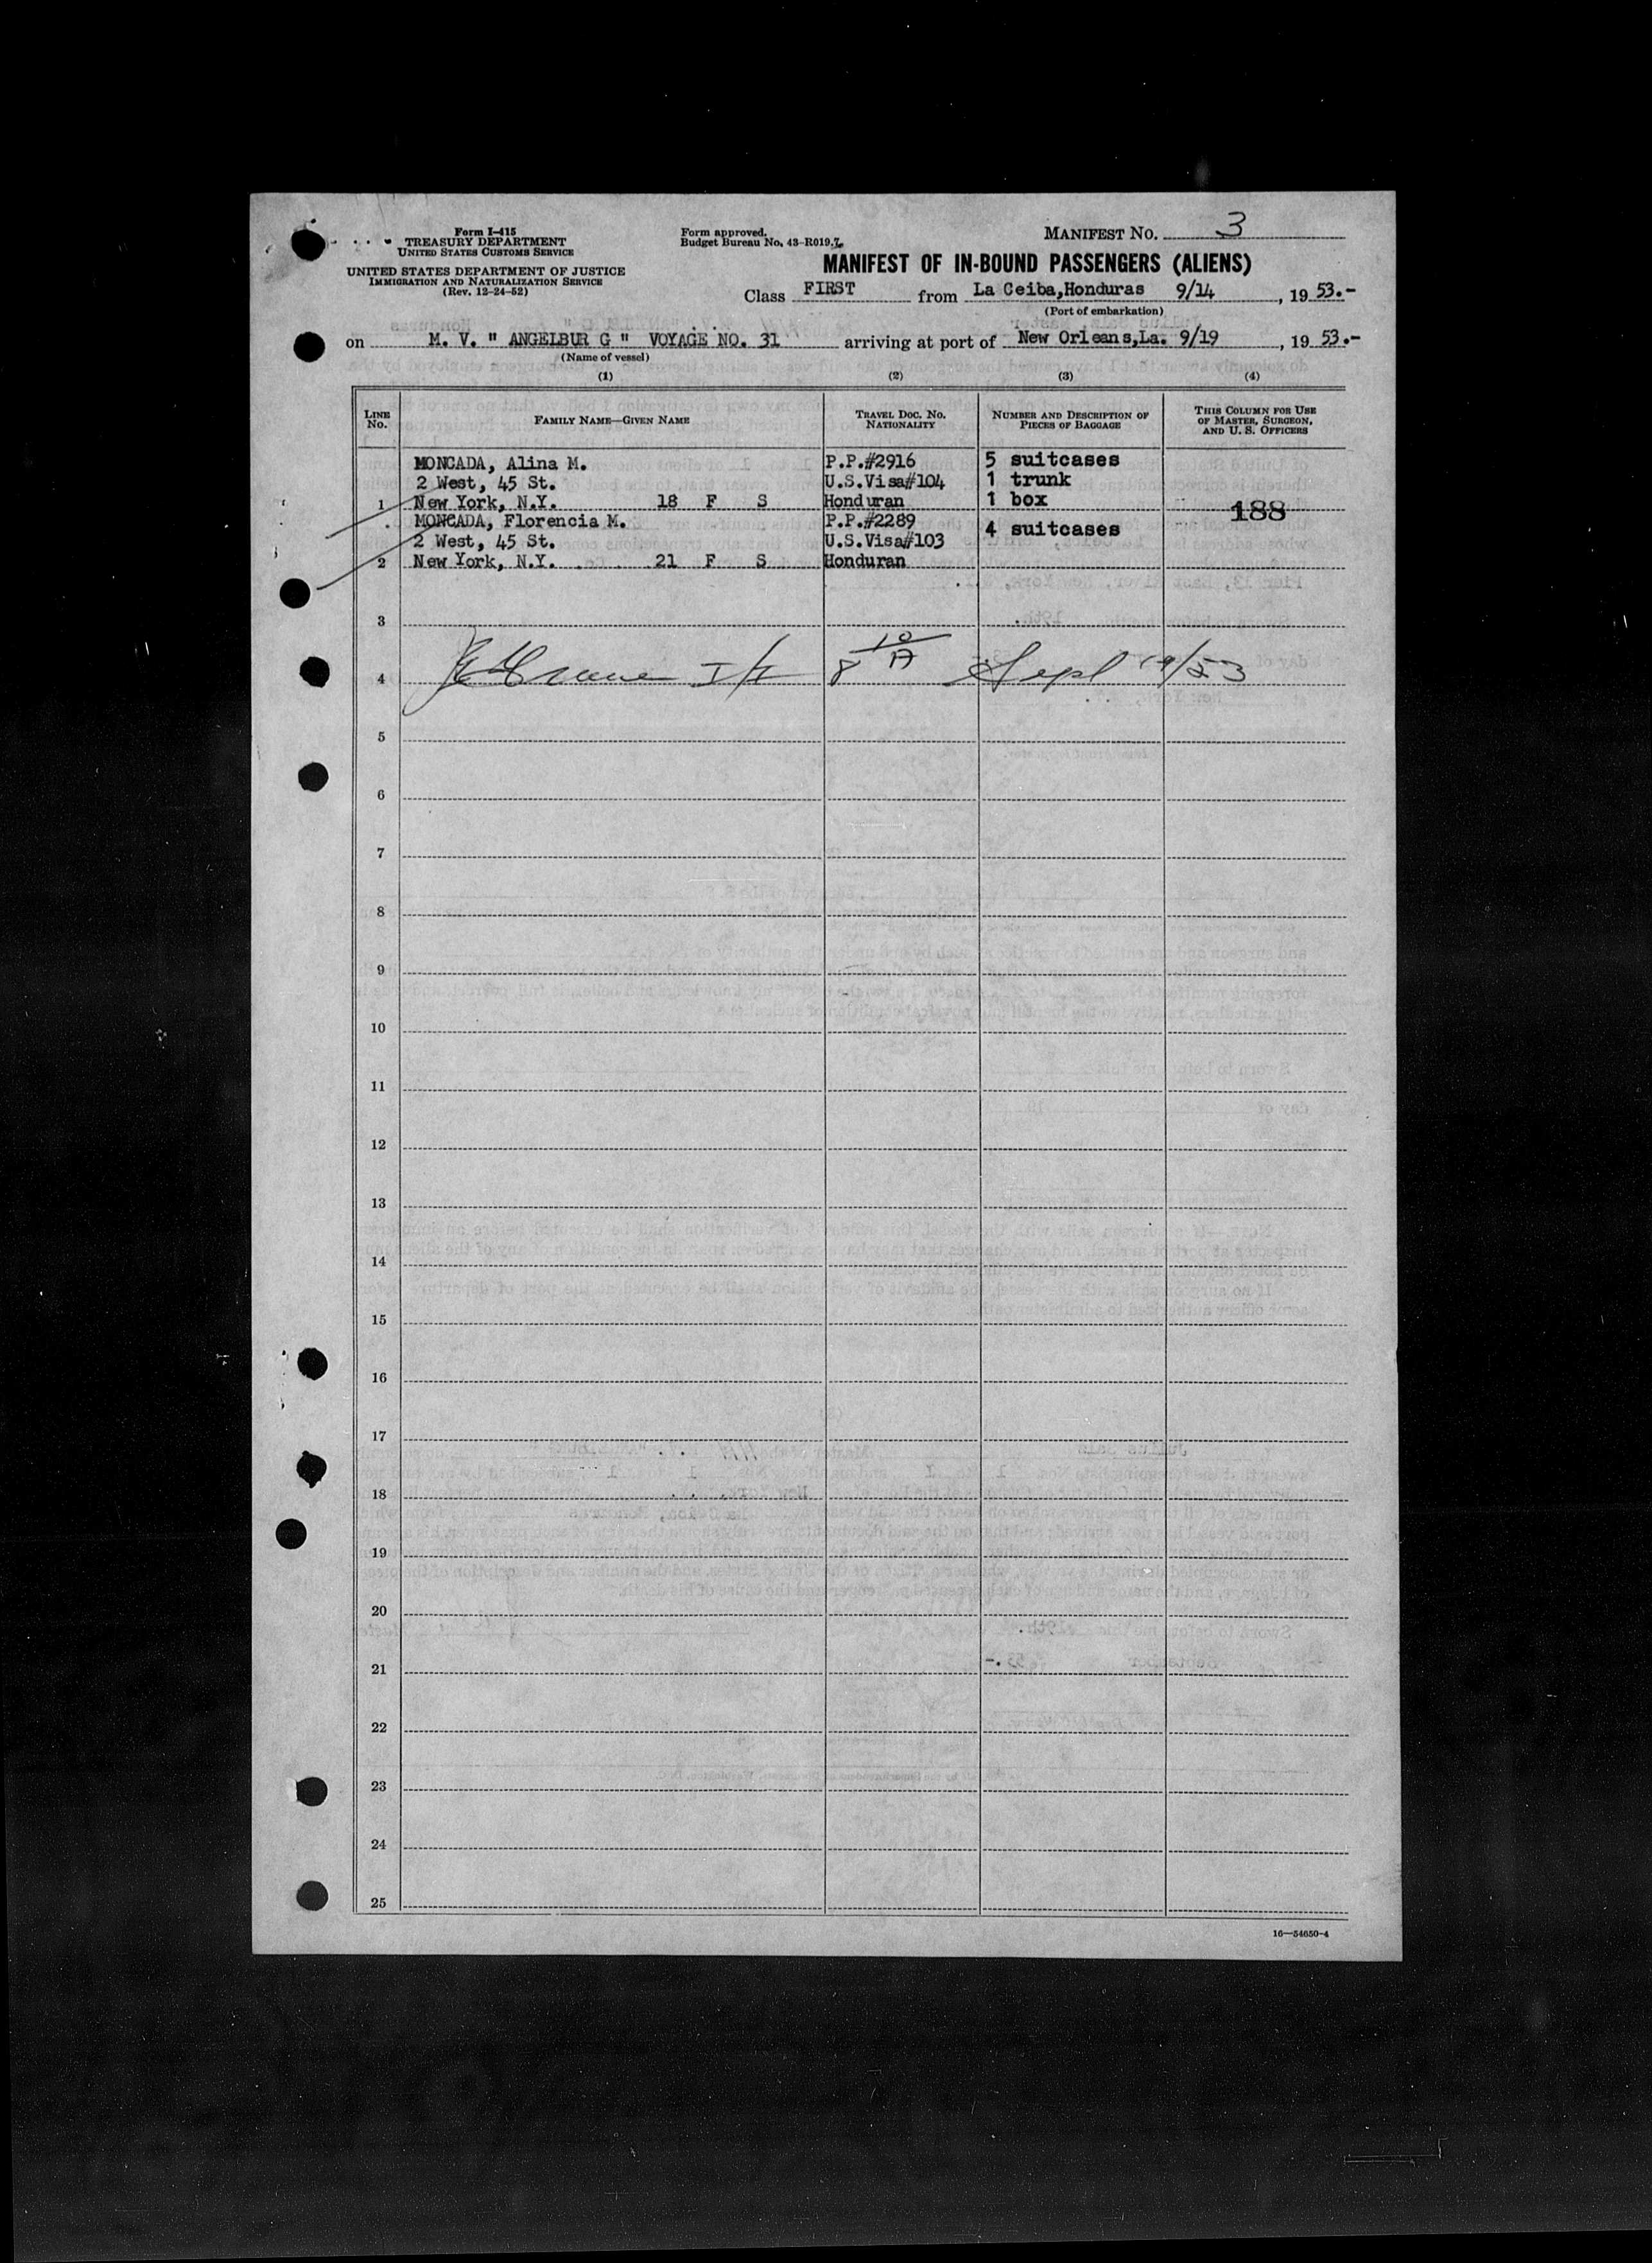 Form I-415
TREASURY DEPARTMENT
UNITED STATES CUSTOMS SERVICE
UNITED STATES DEPARTMENT OF JUSTICE
IMMIGRATION AND NATURALIZATION SERVICE
(Rev. 12-24-52)
Form approved.
Budget Bureau No. 43-R019.7.
MANIFEST NO. 3
MANIFEST OF IN-BOUND PASSENGERS (ALIENS)
Class FIRST from La Ceiba,Honduras 9/14, 19 53.-
(Port of embarkation)
on M. V. " ANGELBUR G " VOYAGE NO. 31 arriving at port of New Orleans,La. 9/19, 19 53.-
(Name of vessel)
(1) (2) (3) (4)
LINE NO. FAMILY NAME—GIVEN NAME TRAVEL DOC. NO. NATIONALITY NUMBER AND DESCRIPTION OF PIECES OF BAGGAGE THIS COLUMN FOR USE OF MASTER, SURGEON, AND U. S. OFFICERS
MONCADA, Alina M. P.P.#2916 5 suitcases
2 West, 45 St. U.S.Visa#104 1 trunk
1 New York, N.Y. 18 F S Honduran 1 box 188
MONCADA, Florencia M. P.P.#2289 4 suitcases
2 West, 45 St. U.S.Visa#103
2 New York, N.Y. 21 F S Honduran
3
4 8 10/A Sept 19/53
5
6
7
8
9
10
11
12
13
14
15
16
17
18
19
20
21
22
23
24
25
16—54650-4